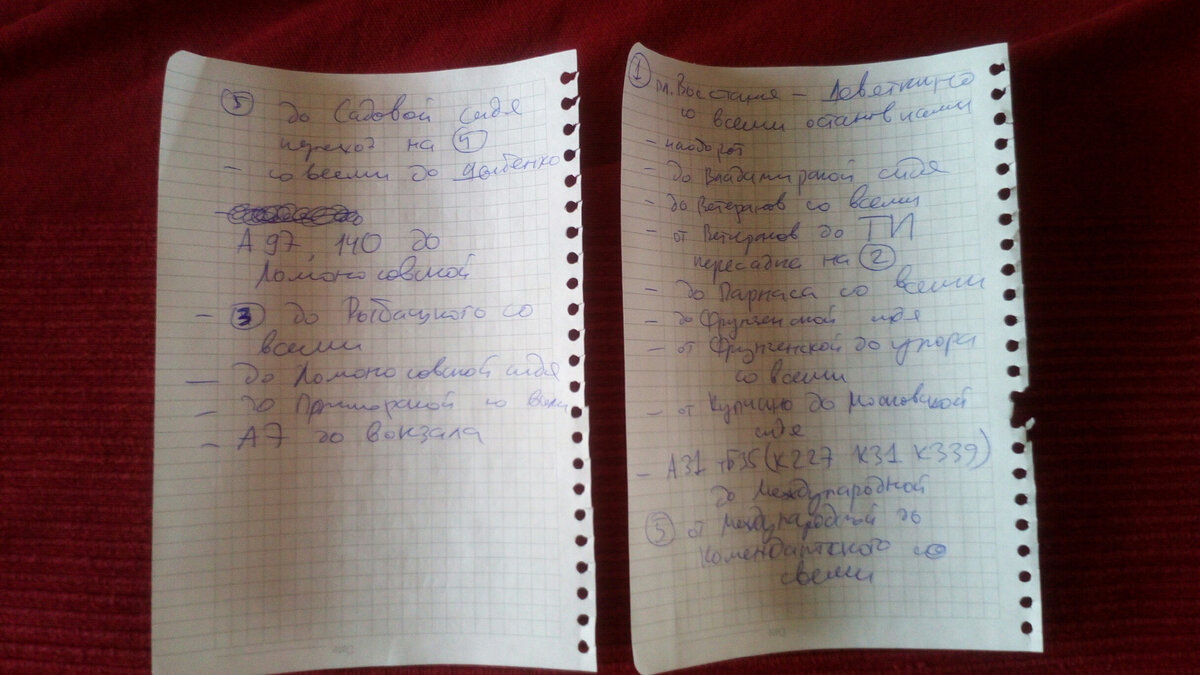 5 до Садовой сидя
переход на 4
- со всеми до Дыбенко
А 97 140 до
Ломоносовской
- 3 до Рыбацкого со
всеми
- до Ломоносовской сидя
- до Приморской со всеми
- А7 до вокзала
1 пл. Восстания - Девяткино
со всеми остановками
- наоборот
- до Владимирской сидя
- до Ветеранов со всеми
- от Ветеранов до ТИ
пересадка на 2
- до Парнаса со всеми
- до Фрунзенской сидя
- от Фрунзенской до упора
со всеми
- от Купчино до Московской
сидя
- А31 т35 (К227 К31 К339)
до Международной
5 от Международной до
Комендантского со
всеми